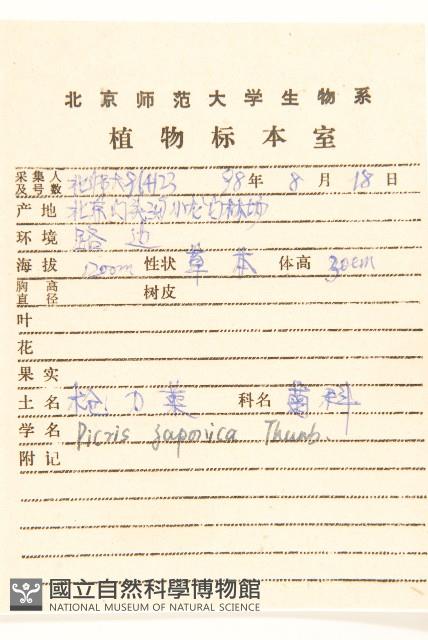 北京师范大学生物系
植物标本室
采集人及号数 北师大 98年 8月18日
产地 北京门头沟小龙门林场
环境 路边
海拔 1200m 性状 草本 体高 30cm
胸高直径 树皮
叶
花
果实
土名 枪刀菜 科名 菊科
学名 Picris japonica Thunb.
附记
國立自然科學博物館
NATIONAL MUSEUM OF NATURAL SCIENCE